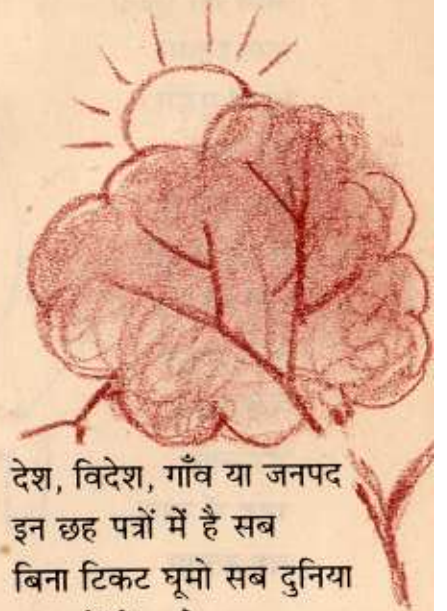 देश, विदेश, गाँव या जनपद
इन छह पत्रों में है सब
बिना टिकट घूमो सब दुनिया